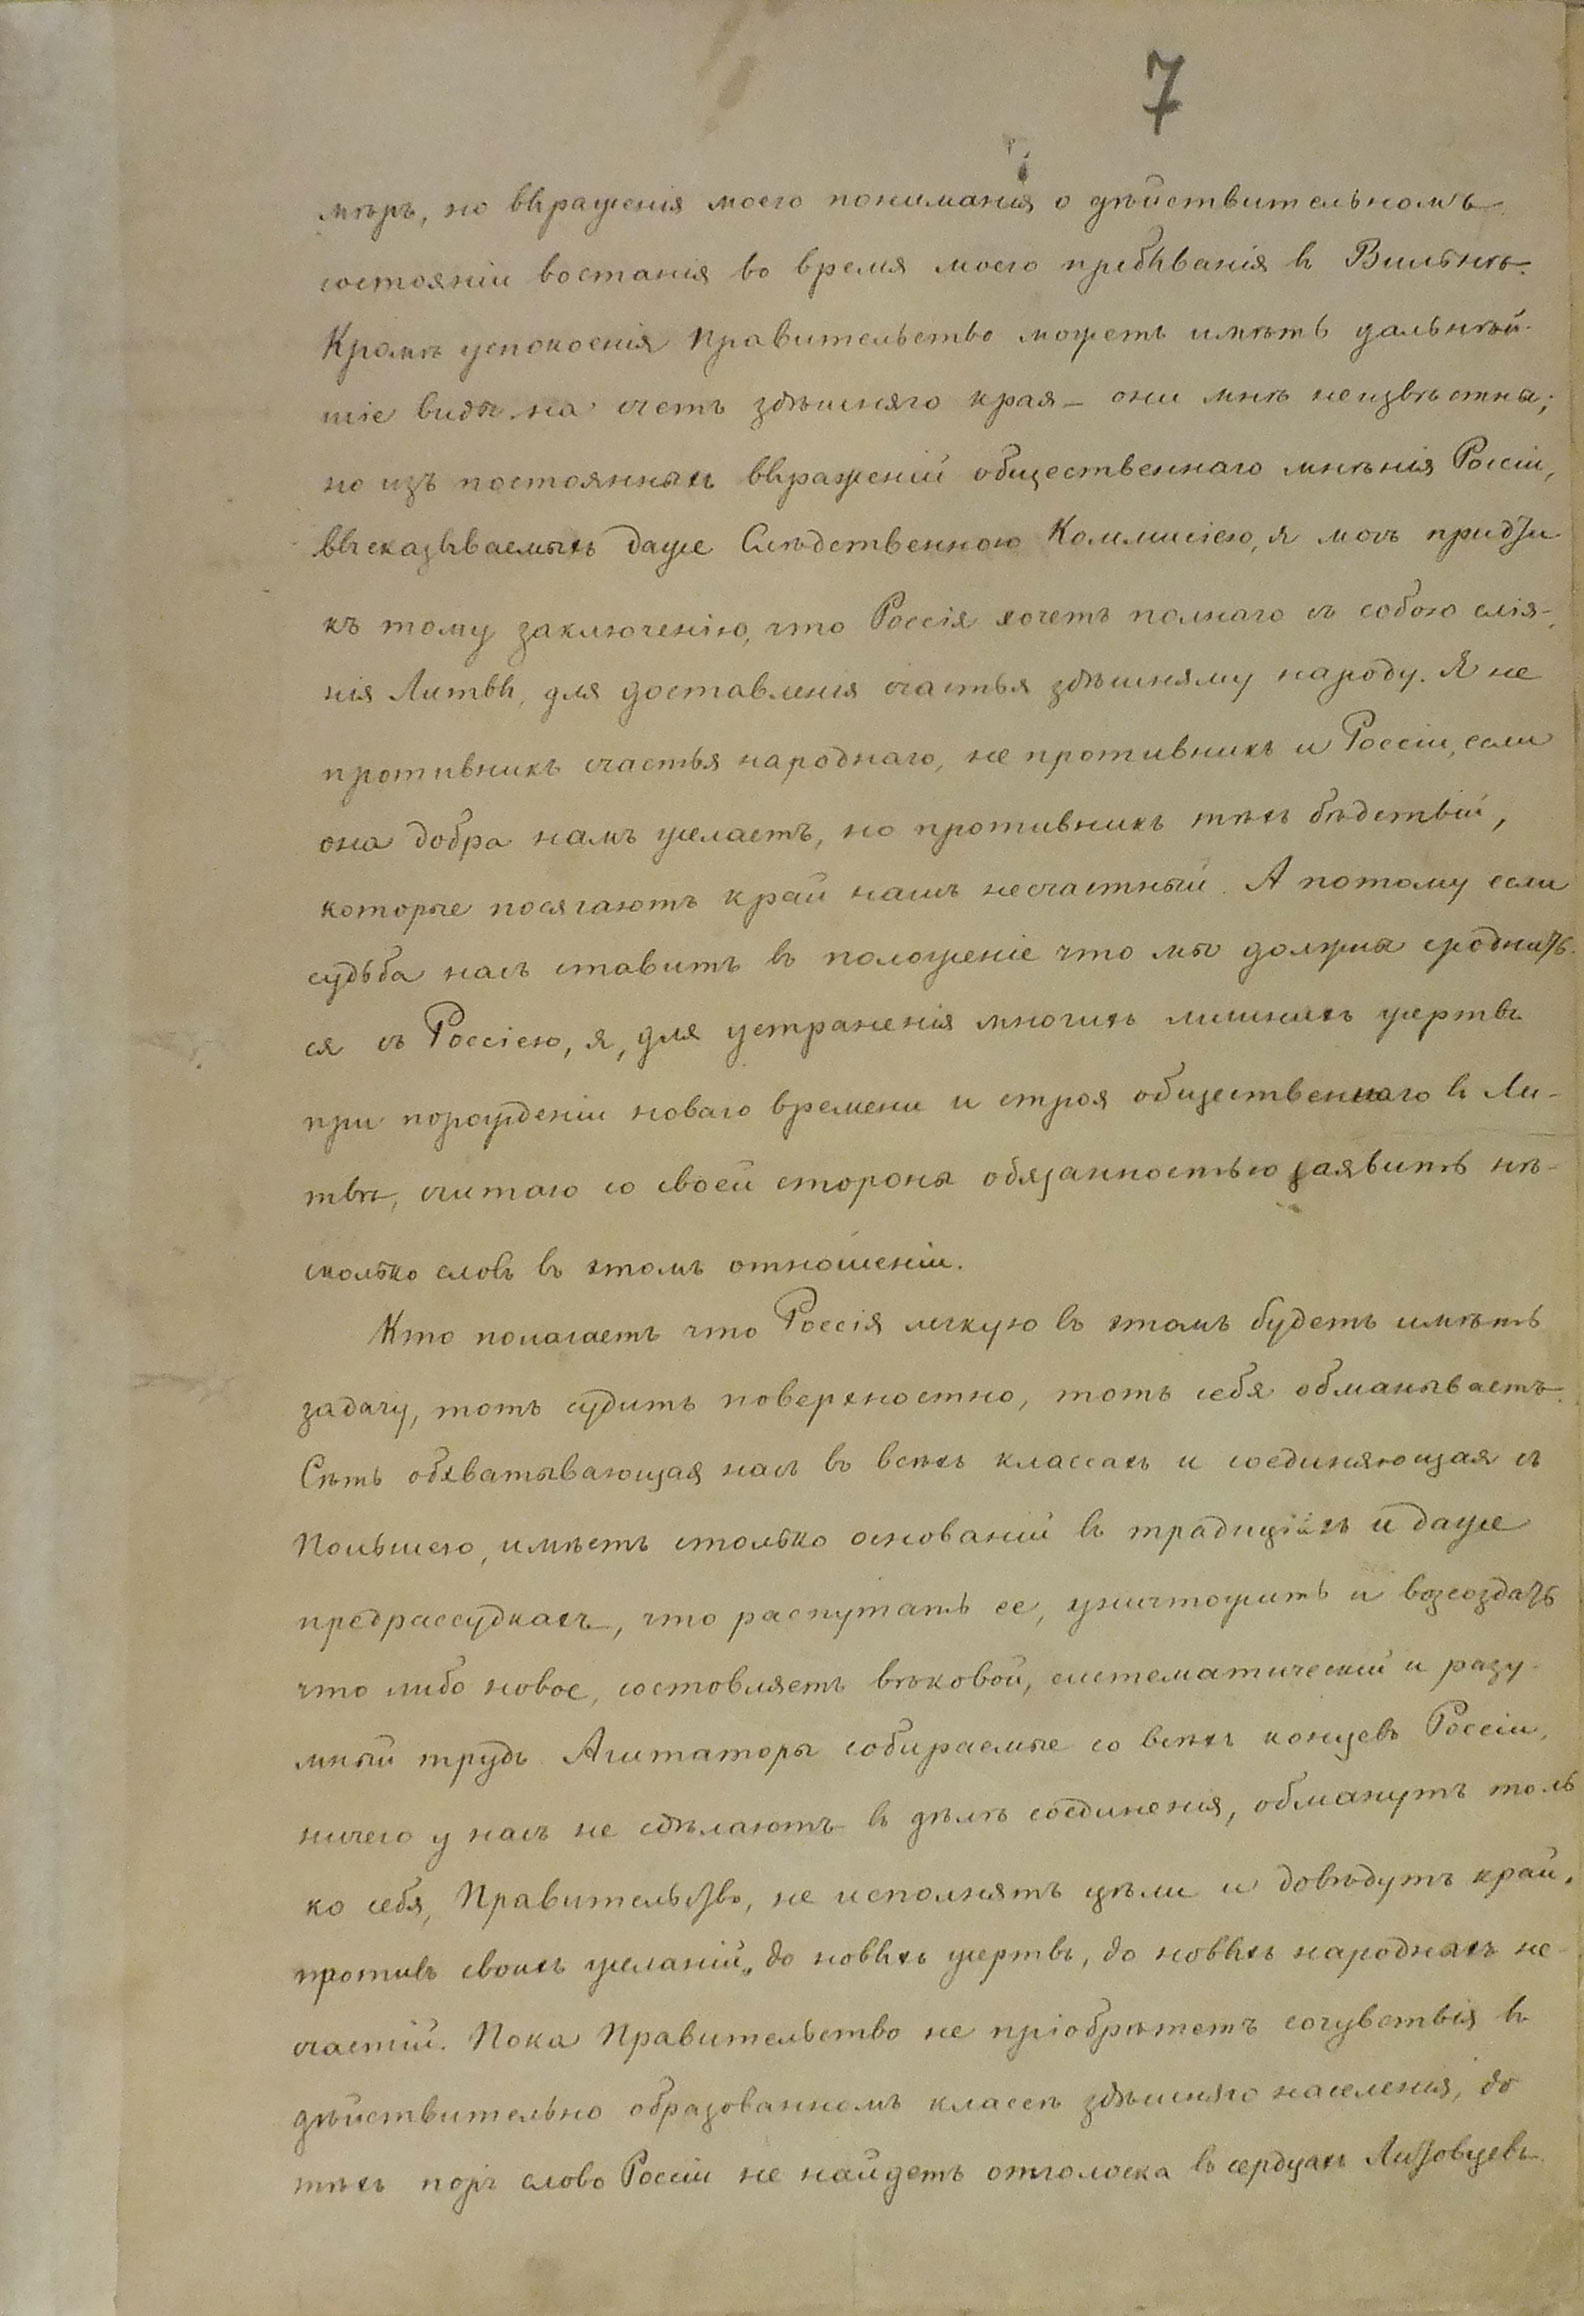 7
мѣръ, но выраженія моего пониманія о дѣйствительномъ
состояніи востанія во время моего пребыванія въ Вильнѣ.
Кромѣ успокоенія Правительство можетъ имѣть дальнѣй-
шіе виды на счетъ здѣшняго края – они мнѣ неизвѣстны;
но изъ постоянныхъ выраженій общественнаго мнѣнія Россіи,
высказываемыхъ даже Слѣдственною Коммисіею, я могъ придти
къ тому заключенію, что Россія хочетъ полнаго съ собою слія-
нія Литвы, для доставленія счастья здѣшнему народу. Я не
противникъ счастья народнаго, не противникъ и Россіи, если
она добра намъ желаетъ, но противникъ тѣхъ бѣдствій,
которые посягаютъ край нашъ несчастный. А потому если
судьба насъ ставитъ въ положеніе что мы должны сроднить-
ся съ Россіею, я, для устраненія многихъ лишнихъ жертвъ
при порожденіи новаго времени и строя общественнаго въ Ли-
твѣ, считаю со своей стороны обязанностью заявить нѣ-
сколько словъ въ этомъ отношеніи.
Кто полагаетъ что Россія легкую въ этомъ будетъ имѣть
задачу, тотъ судитъ поверхностно, тотъ себя обманываетъ.
Сѣть обхватывающая насъ въ всѣхъ классахъ и соединяющая съ
Польшею, имѣетъ столько основаній въ традиціяхъ и даже
предрассудкахъ, что распутать ее, уничтожить и возсоздать
что либо новое, состовляетъ вѣковой, систематическій и разу-
мный трудъ. Агитаторы собираемые со всѣхъ концевъ Россіи,
ничего у насъ не сдѣлаютъ въ дѣлѣ соединенія, обманутъ толь
ко себя, Правительство, не исполнятъ цѣли и довѣдутъ край,
противъ своихъ желаній, до новыхъ жертвъ, до новыхъ народныхъ не-
счастій. Пока Правительство не пріобрѣтетъ сочувствія въ
дѣйствительно образованномъ классѣ здѣшняго населенія, до
тѣхъ поръ слово Россіи не найдетъ отголоска въ сердцахъ Литовцевъ.